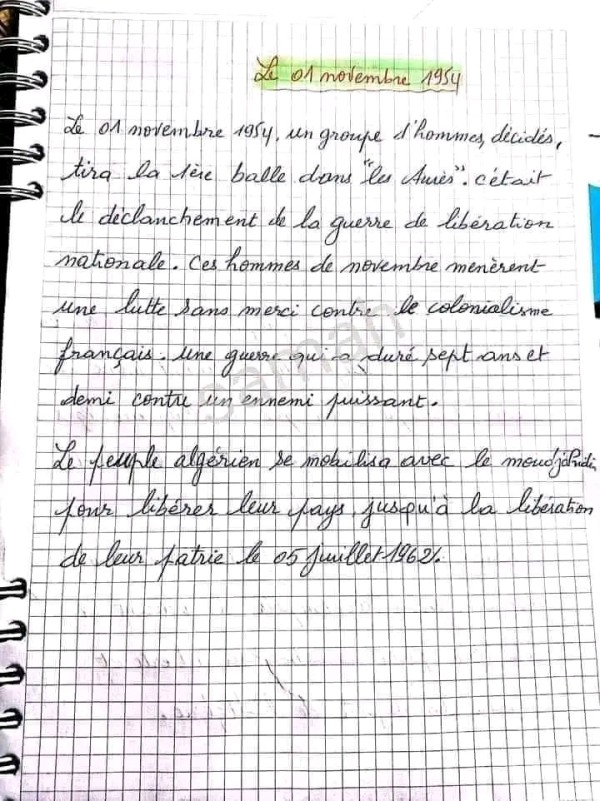 Le 01 novembre 1954
Le 01 novembre 1954, un groupe d'hommes, décidés,
tira la 1ère balle dans "les Aurès". c'était
le déclanchement de la guerre de libération
nationale. Ces hommes de novembre menèrent
une lutte sans merci contre le colonialisme
français. Une guerre qui a duré sept ans et
demi contre un ennemi puissant.
Le peuple algérien se mobilisa avec le moudjahidin
pour libérer leur pays jusqu'à la libération
de leur patrie le 05 juillet 1962.